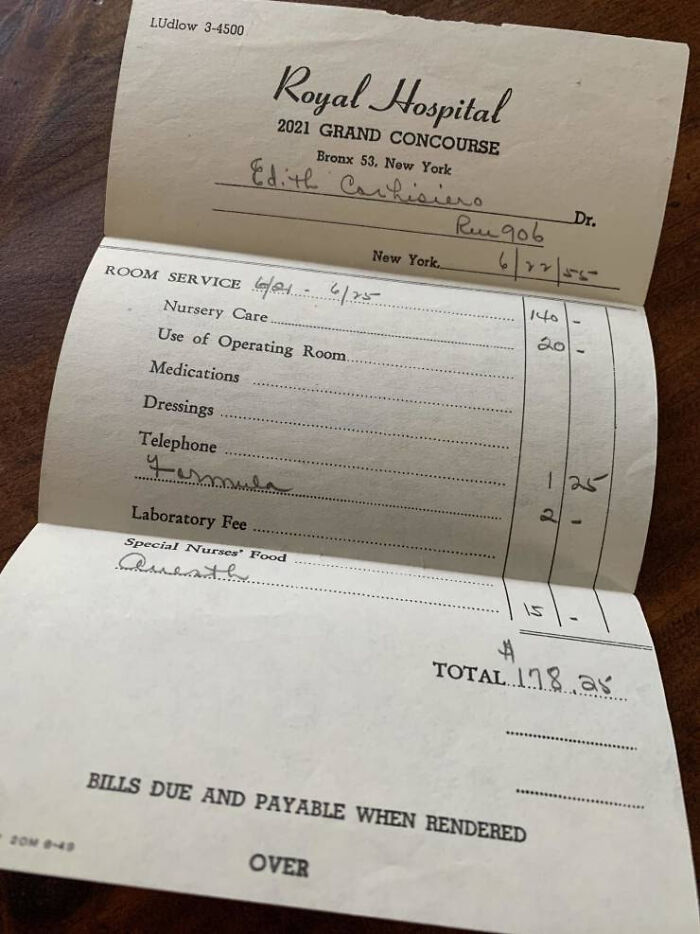 LUdlow 3-4500
Royal Hospital
2021 GRAND CONCOURSE
Bronx 53, New York
Edith Dr.
Rm 906
New York, 6/22/55
ROOM SERVICE 6/21 - 6/25 140 -
Nursery Care 20 -
Use of Operating Room
Medications
Dressings
Telephone 1 25
Formula 2 -
Laboratory Fee
Special Nurses' Food
Anesth 15 -
TOTAL $178.25
BILLS DUE AND PAYABLE WHEN RENDERED
20M 8-49
OVER